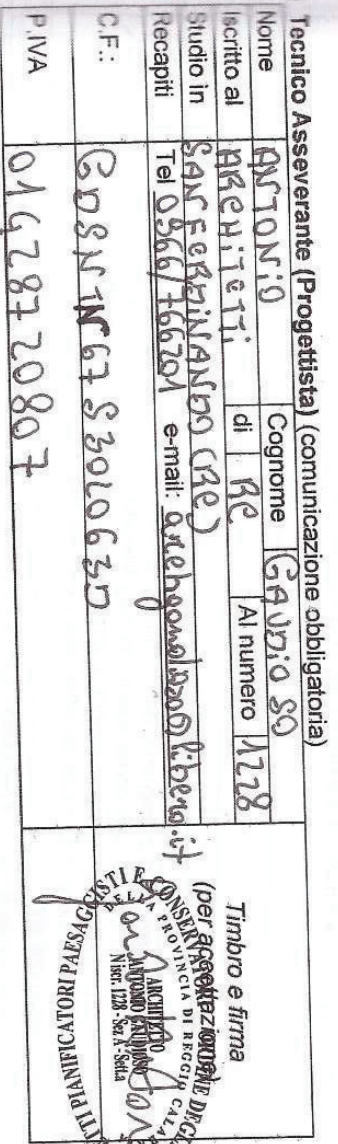 Tecnico Asseverante (Progettista) (comunicazione obbligatoria)
Nome ANTONIO Cognome GAUDIOSO
Iscritto al ARCHITETTI di RC Al numero 1228
Studio in SAN FERDINANDO (RC)
Recapiti Tel 0966/766201 e-mail: @libero.it
C.F.:
P.IVA 01628720807
Timbro e firma
(per accettazione)
ORDINE DEGLI
PIANIFICATORI PAESAGGISTI E CONSERVATORI
DELLA PROVINCIA DI REGGIO CALA
ARCHITETTO
ANTONIO GAUDIOSO
N iscr. 1228 - Sez A - Sett.a